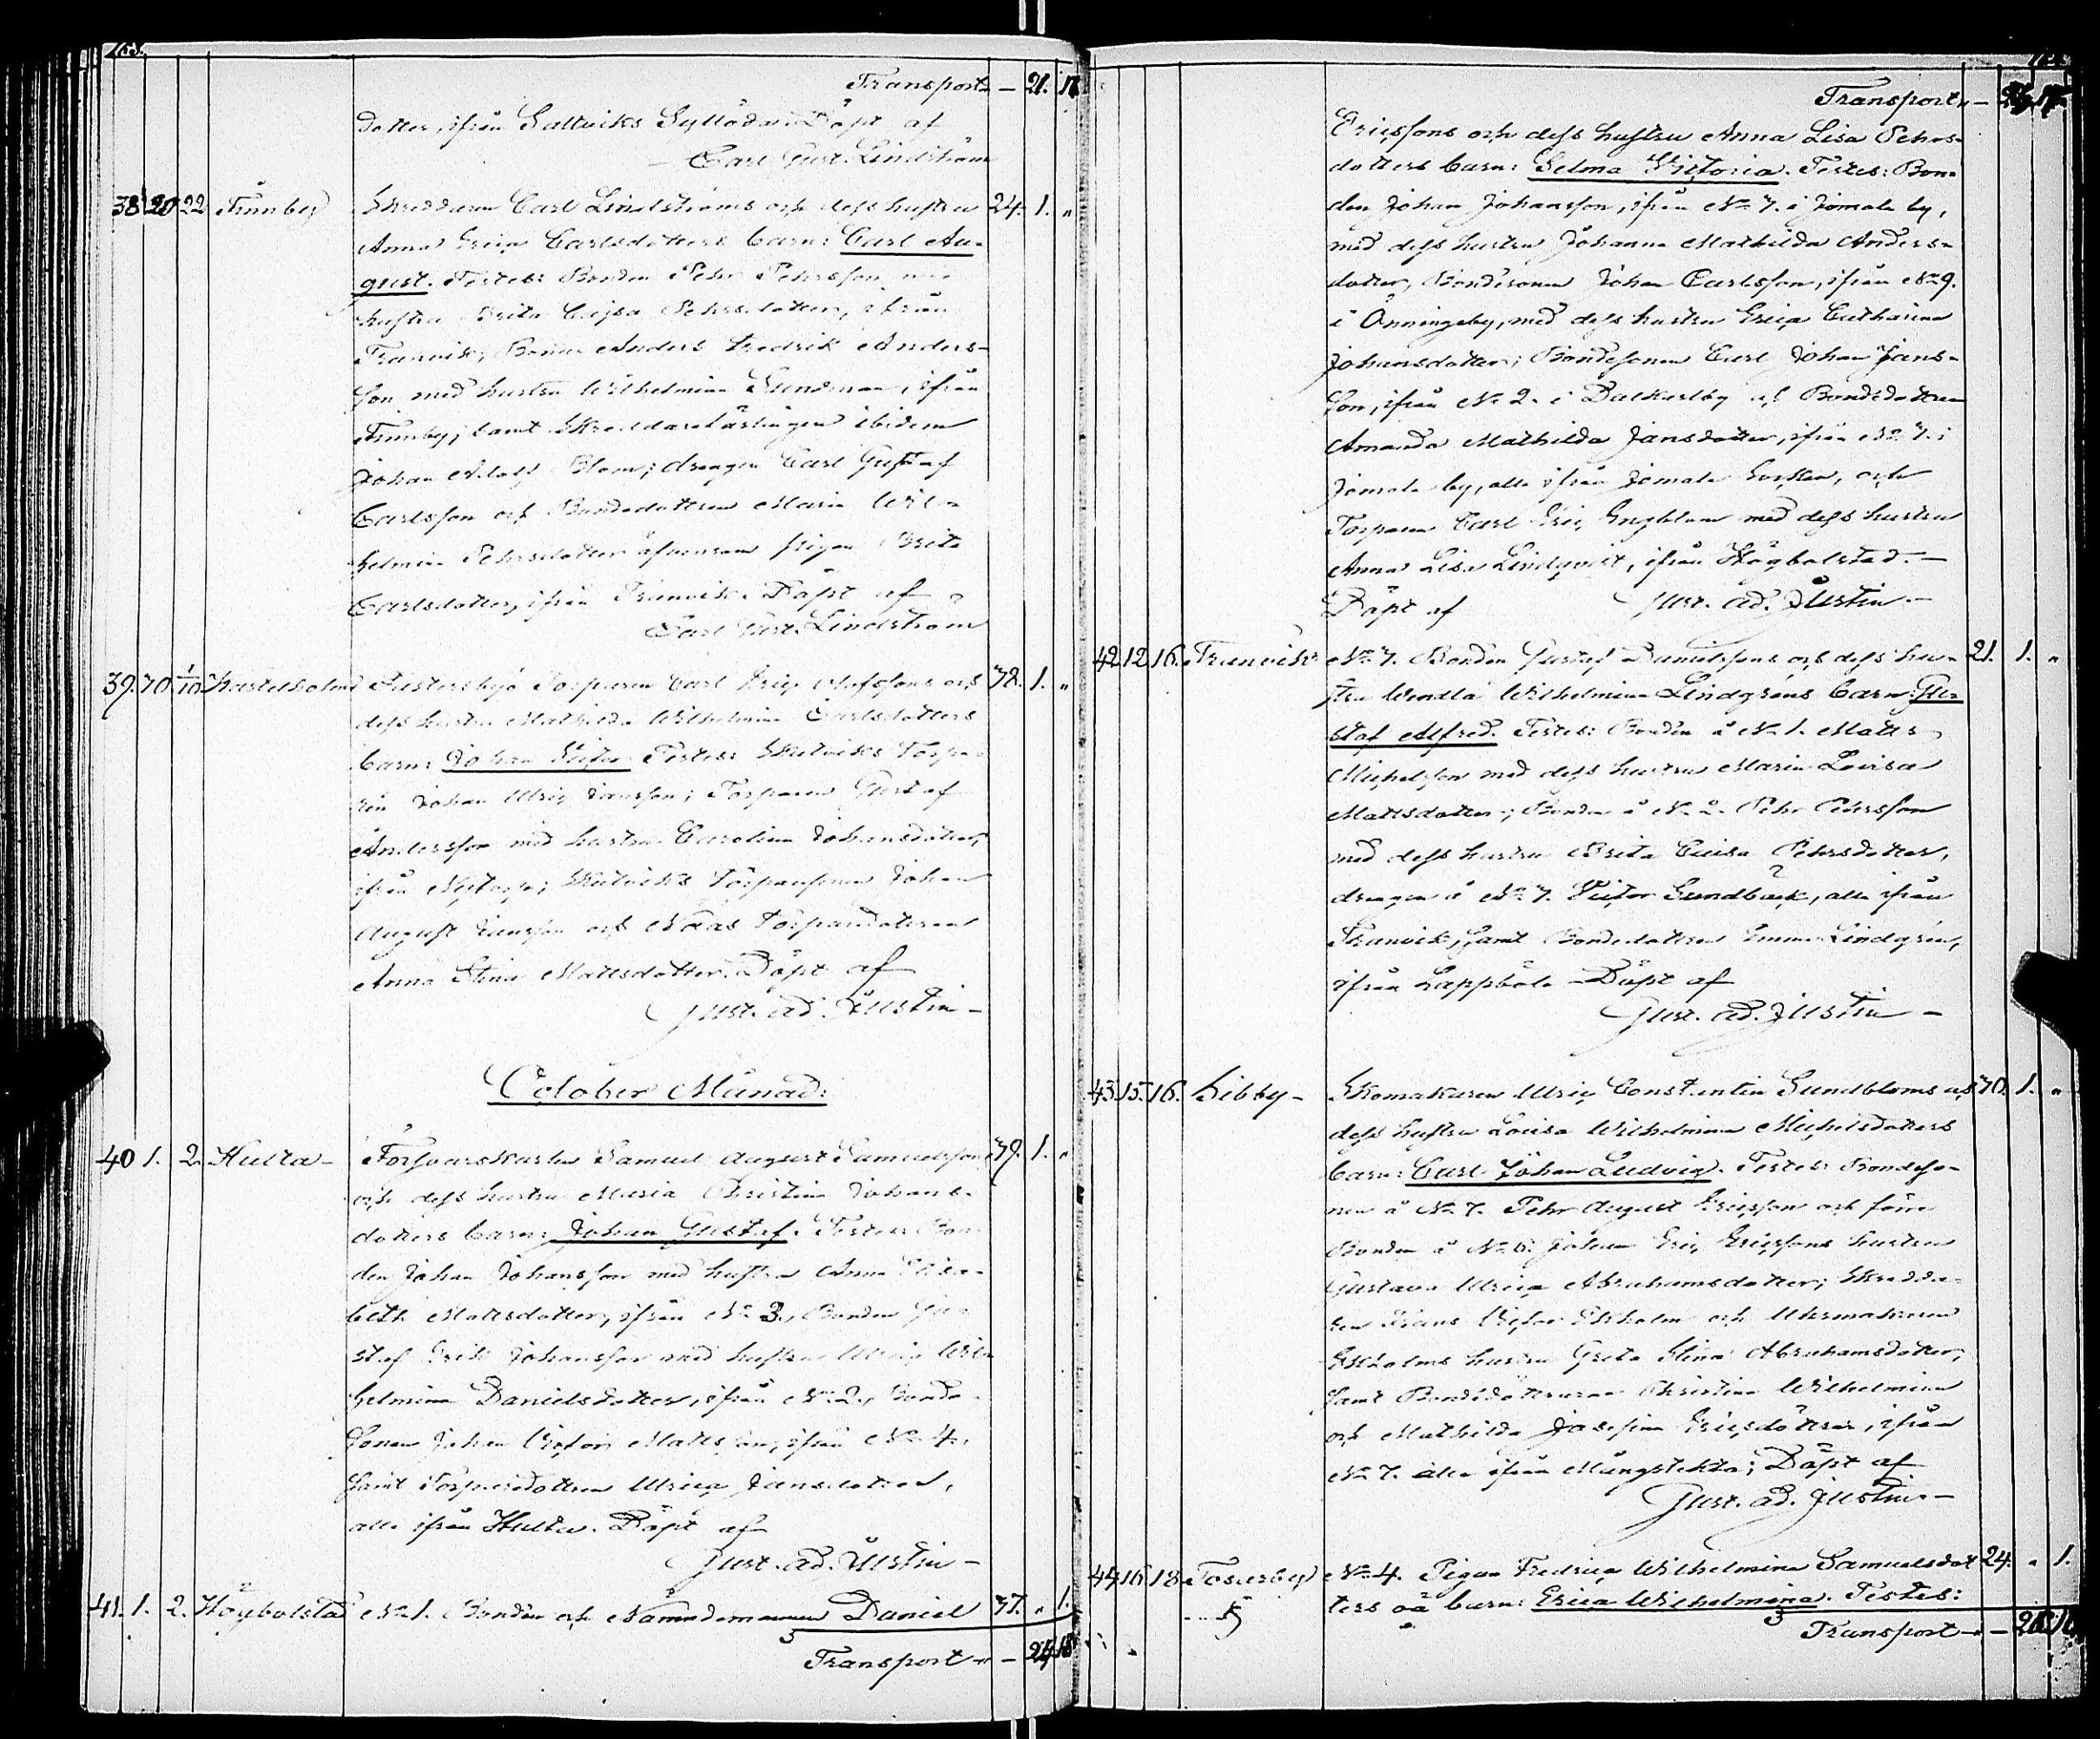 Transport — 21. 17
dotter, ifrån Saltviks Syllöda. Döpt af
Carl Gust. Lindström
38. 20 22 Finnby Skreddaren Carl Lindströms och dess hustru 24. 1. "
Anna Erica Carlsdotters barn: Carl Au-
gust. Testes: Bonden Pehr Pehrsson med
hustru Brita Cajsa Pehrsdotter, ifrån
Tranvik, Bonden Anders Fredrik Anders-
son med hustru Wilhelmina Sundman, ifrån
Finnby, samt Skreddarelärlingen ibidem
Johan Adolf Blom; drengen Carl Gustaf
Carlsson och Bondedottren Maria Wil-
helmina Pehrsdotter äfvensom pigan Brita
Carlsdotter, ifrån Tranvik. Döpt af
Carl Gust. Lindström
39. 70. 1/10 Kastelholm Torparen Carl Eric Olofssons och 78. 1. "
dess hustru Mathilda Wilhelmina Carlsdotters
barn: Johan Victor. Testes: Torpa-
ren Johan Ulric Jansson; Torparen Gustaf
Andersson med hustru Carolina Johansdotter,
ifrån Torparsonen Johan
August Jansson och Torparedottren
Anna Stina Mattsdotter. Döpt af
Gust. Ad. Justin —
October Månad:
40 1. 2. Hulta — Försvarskarlen Samuel August Samuelssons 79. 1. "
och dess hustru Maria Christina Johans-
dotters barn: Johan Gustaf. Testes: Bon-
den Johan Johansson med hustru Anna Elisa-
beth Mattsdotter, ifrån No 3., Bonden Gu-
staf Erik Johansson med hustru Ulrica Wil-
helmina Danielsdotter, ifrån No 2., Bonde-
sonen Johan Victor Mattsson, ifrån No 4.
samt Torparedottren Ulrica Jansdotter,
alla ifrån Hulta. Döpt af
Gust. Ad. Justin —
41. 1. 2. Högbolstad No 1. Bonden och Nämndemannen Daniel 37. " 1.
Transport — 24 18
Transport — 24 18
Ericssons och dess hustru Anna Lisa Pehrs-
dotters barn: Selma Victoria. Testes: Bon-
den Johan Johansson, ifrån No 7. i Jomala by,
med dess hustru Johanna Mathilda Anders-
dotter, Bondesonen Johan Carlsson, ifrån No 9.
i Önningeby, med dess hustru Erica Catharina
Johansdotter; Bondesonen Carl Johan Jans-
son, ifrån No 2. i Dalkarlby och Bondedottren
Amanda Mathilda Jansdotter, ifrån No 7. i
Jomala by, alla ifrån Jomala Socken, och
Torparen Carl Eric Engblom med dess hustru
Anna Lisa Lindqvist, ifrån Högbolstad. —
Döpt af Gust. Ad. Justin. —
42 12 16. Tranvik No 7. Bonden Gustaf Danielssons och dess hu- 21. 1. "
stru Wendla Wilhelmina Lindgréns barn: Gu-
staf Alfred. Testes: Bonden å No 1. Matts
Michelsson med dess hustru Maria Lovisa
Mattsdotter; Bonden å No 2. Pehr Pehrsson
med dess hustru Brita Caisa Pehrsdotter,
drengen å No 7. Victor Sundback, alla ifrån
Tranvik, samt Bondedottren Emma Lindgrén,
ifrån Lappböle. Döpt af
Gust. Ad. Justin —
43 15. 16. Sibby — Skomakaren Ulric Constantin Sundbloms och 70. 1. "
dess hustru Lovisa Wilhelmina Michelsdotters
barn: Carl Johan Ludvig. Testes: Bondeso-
nen å No 7. Pehr August Ericsson och förre
Bonden å No 6. Johan Eric Ericssons hustru
Gustava Ulrica Abrahamsdotter; Skredda-
ren Frans Victor Ekholm och Uhrmakaren
Ekholms hustru Greta Stina Abrahamsdotter,
samt Bondedöttrarna Christina Wilhelmina
och Mathilda Josefina Ericsdöttrar, ifrån
No 7. alla ifrån Mångstekta; Döpt af
Gust. Ad. Justin —
44 16 18 Tosarby No 4. Pigan Fredrica Wilhelmina Samuelsdot- 24. " 1.
ters oä barn: Erica Wilhelmina. Testes:
Transport — 26 19